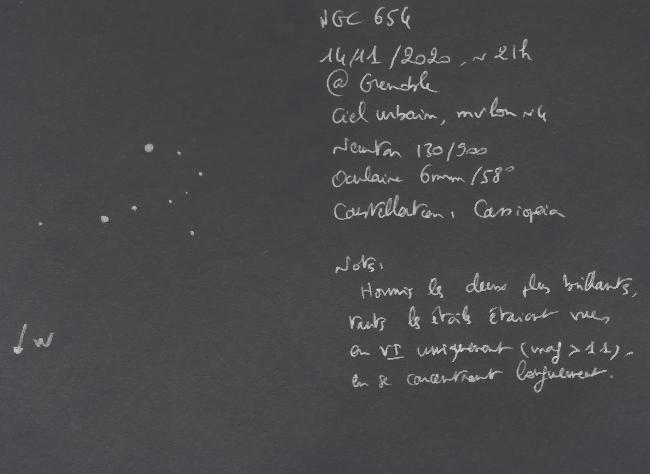 NGC 654
14/11/2020, ~ 21h
@ Grenoble
Ciel urbain, mvlon ~4
Newton 130/900
Oculaire 6mm/58°
Constellation: Cassiopeia
Notes:
Hormis les deux plus brillants,
toutes les étoiles étaient vues
en VI uniquement (mag > 11).
en se concentrant longuement.
W